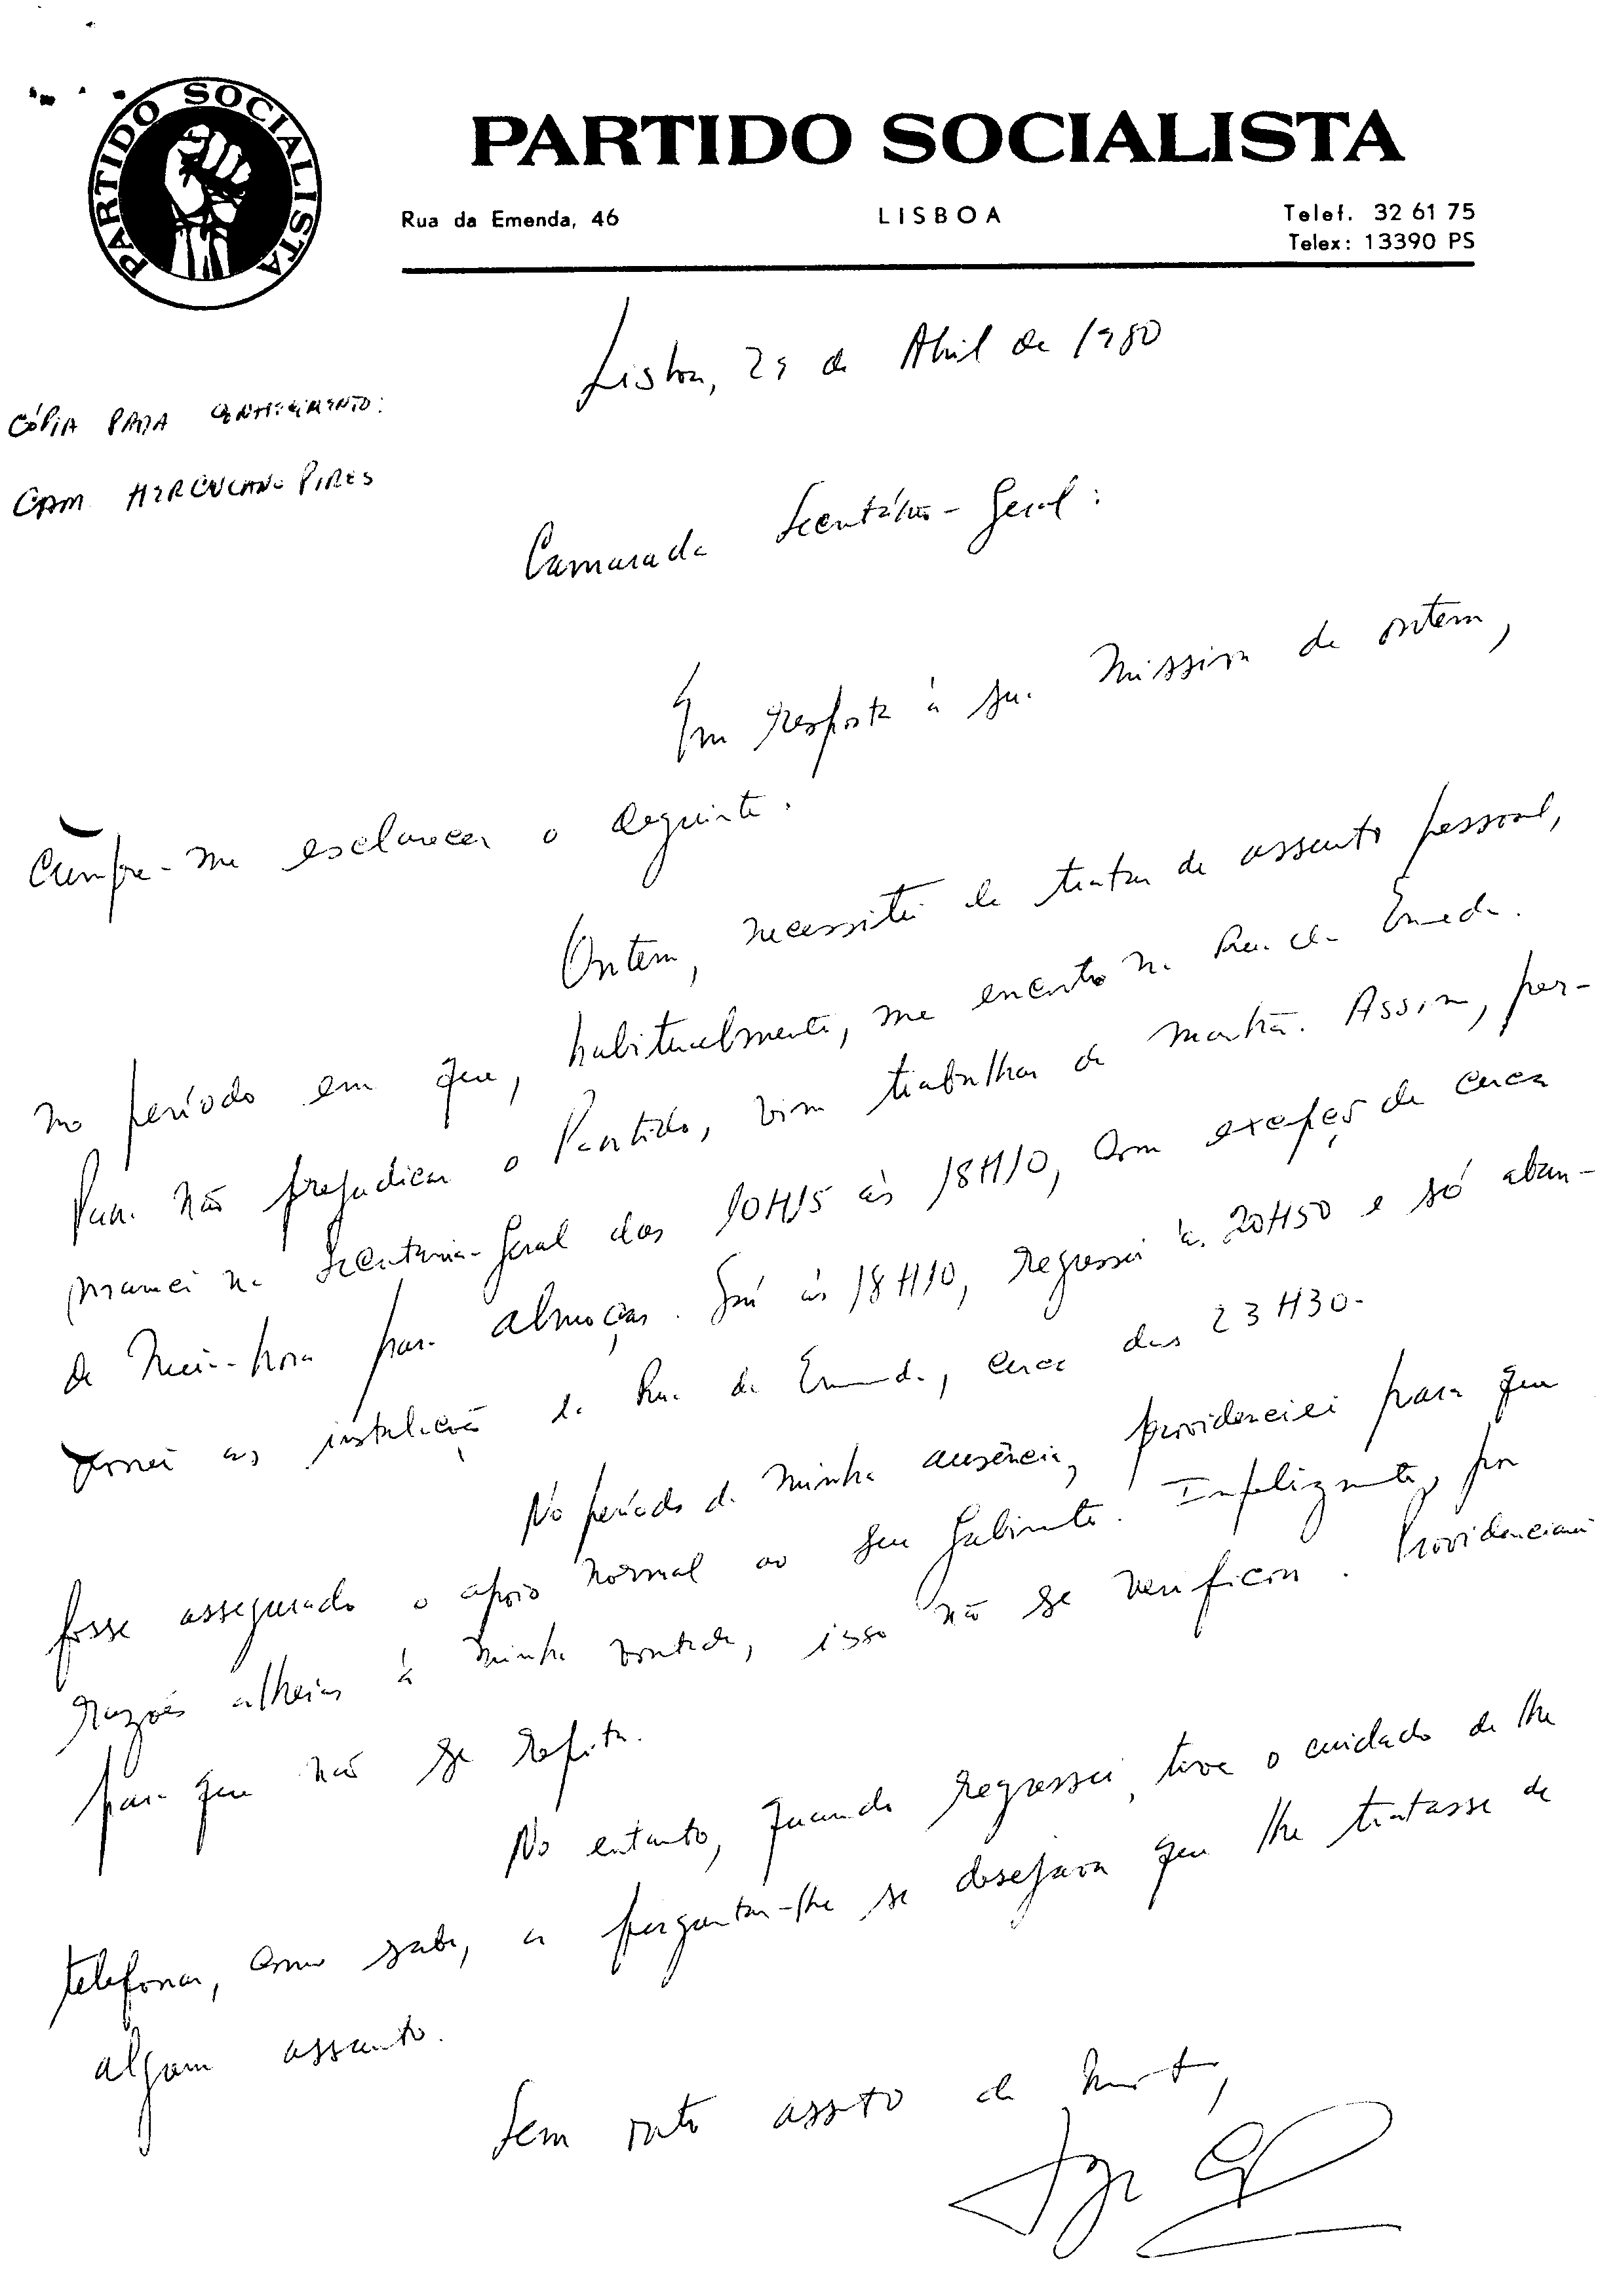 PARTIDO SOCIALISTA
PARTIDO SOCIALISTA
Rua da Emenda, 46
LISBOA
Telef. 32 61 75
Telex: 13390 PS
Lisboa, 29 de Abril de 1980
CÓPIA PARA CONHECIMENTO:
CAM. HERCULANO PIRES
Camarada Secretário-Geral:
Em resposta à sua missiva de ontem,
cumpre-me esclarecer o seguinte.
Ontem, necessitei de tratar de assunto pessoal,
no período em que, habitualmente, me encontro na Rua da Emenda.
Para não prejudicar o Partido, vim trabalhar de manhã. Assim, per-
manecei na Secretaria-Geral das 10H15 às 18H10, com excepção de cerca
de meia-hora para almoçar. Saí às 18H10, regressei às 20H50 e só aban-
donei as instalações da Rua da Emenda, cerca das 23H30.
No período da minha ausência, providenciei para que
fosse assegurado o apoio normal ao seu Gabinete. Infelizmente, por
razões alheias à minha vontade, isso não se verificou. Providenciarei
para que não se repita.
No entanto, quando regressei, tive o cuidado de lhe
telefonar, como sabe, a perguntar-lhe se desejava que lhe tratasse de
algum assunto.
Sem outro assunto de momento,